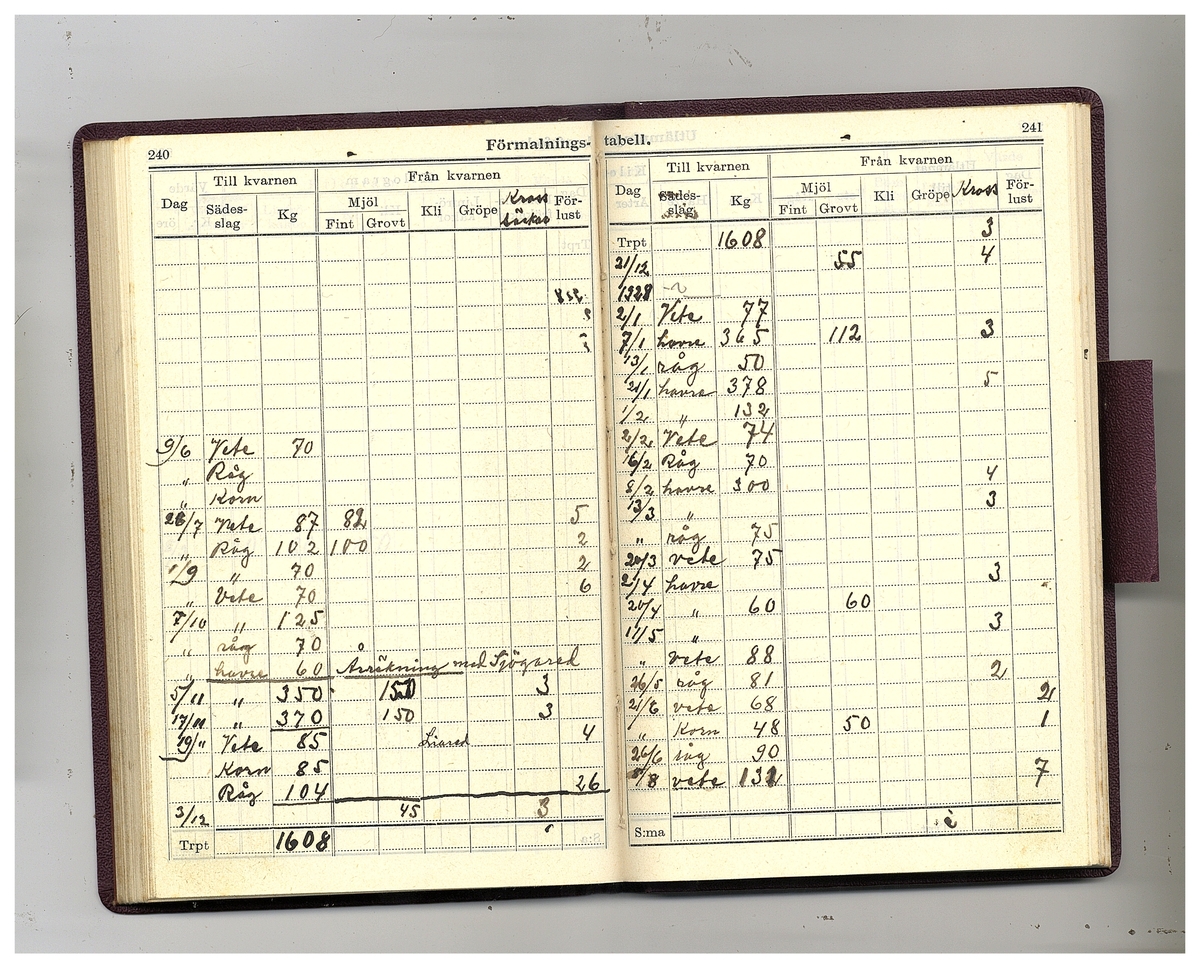 240
Förmalnings-
Dag Till kvarnen Från kvarnen
Sädes-slag Kg Mjöl Fint Grovt Kli Gröpe Kross säckar För-lust
9/6 Vete 70
„ Råg
„ Korn
28/7 Vete 87 82 5
„ Råg 102 100 2
1/9 „ 70 2
„ Vete 70 6
7/10 „ 125
„ råg 70
„ havre 60 Avräkning med Sjögared
5/11 „ 350 150 3
17/11 „ 370 150 3
19/11 Vete 85 Liared 4
Korn 85
Råg 104 26
3/12 45 3
Trpt 1608
S:a
tabell.
241
Dag Till kvarnen Från kvarnen
Sädes-slag Kg Mjöl Fint Grovt Kli Gröpe Kross För-lust
Trpt 1608 3
21/12 55 4
1928
2/1 Vete 77
7/1 havre 365 112 3
13/1 råg 50
21/1 havre 378 5
1/2 „ 132
2/2 Vete 74
16/2 Råg 70
8/2 havre 300 4
13/3 „ 3
„ råg 75
20/3 vete 75
21/4 havre 3
20/4 „ 60 60
17/5 „ 3
„ vete 88
26/5 råg 81 2
21/6 vete 68 2
„ Korn 48 50 1
26/6 råg 90
8/8 vete 131 7
S:ma